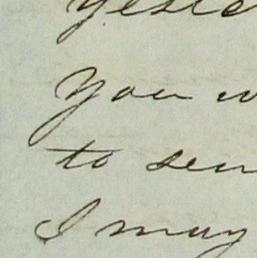 yeste
You w
to sen
I may